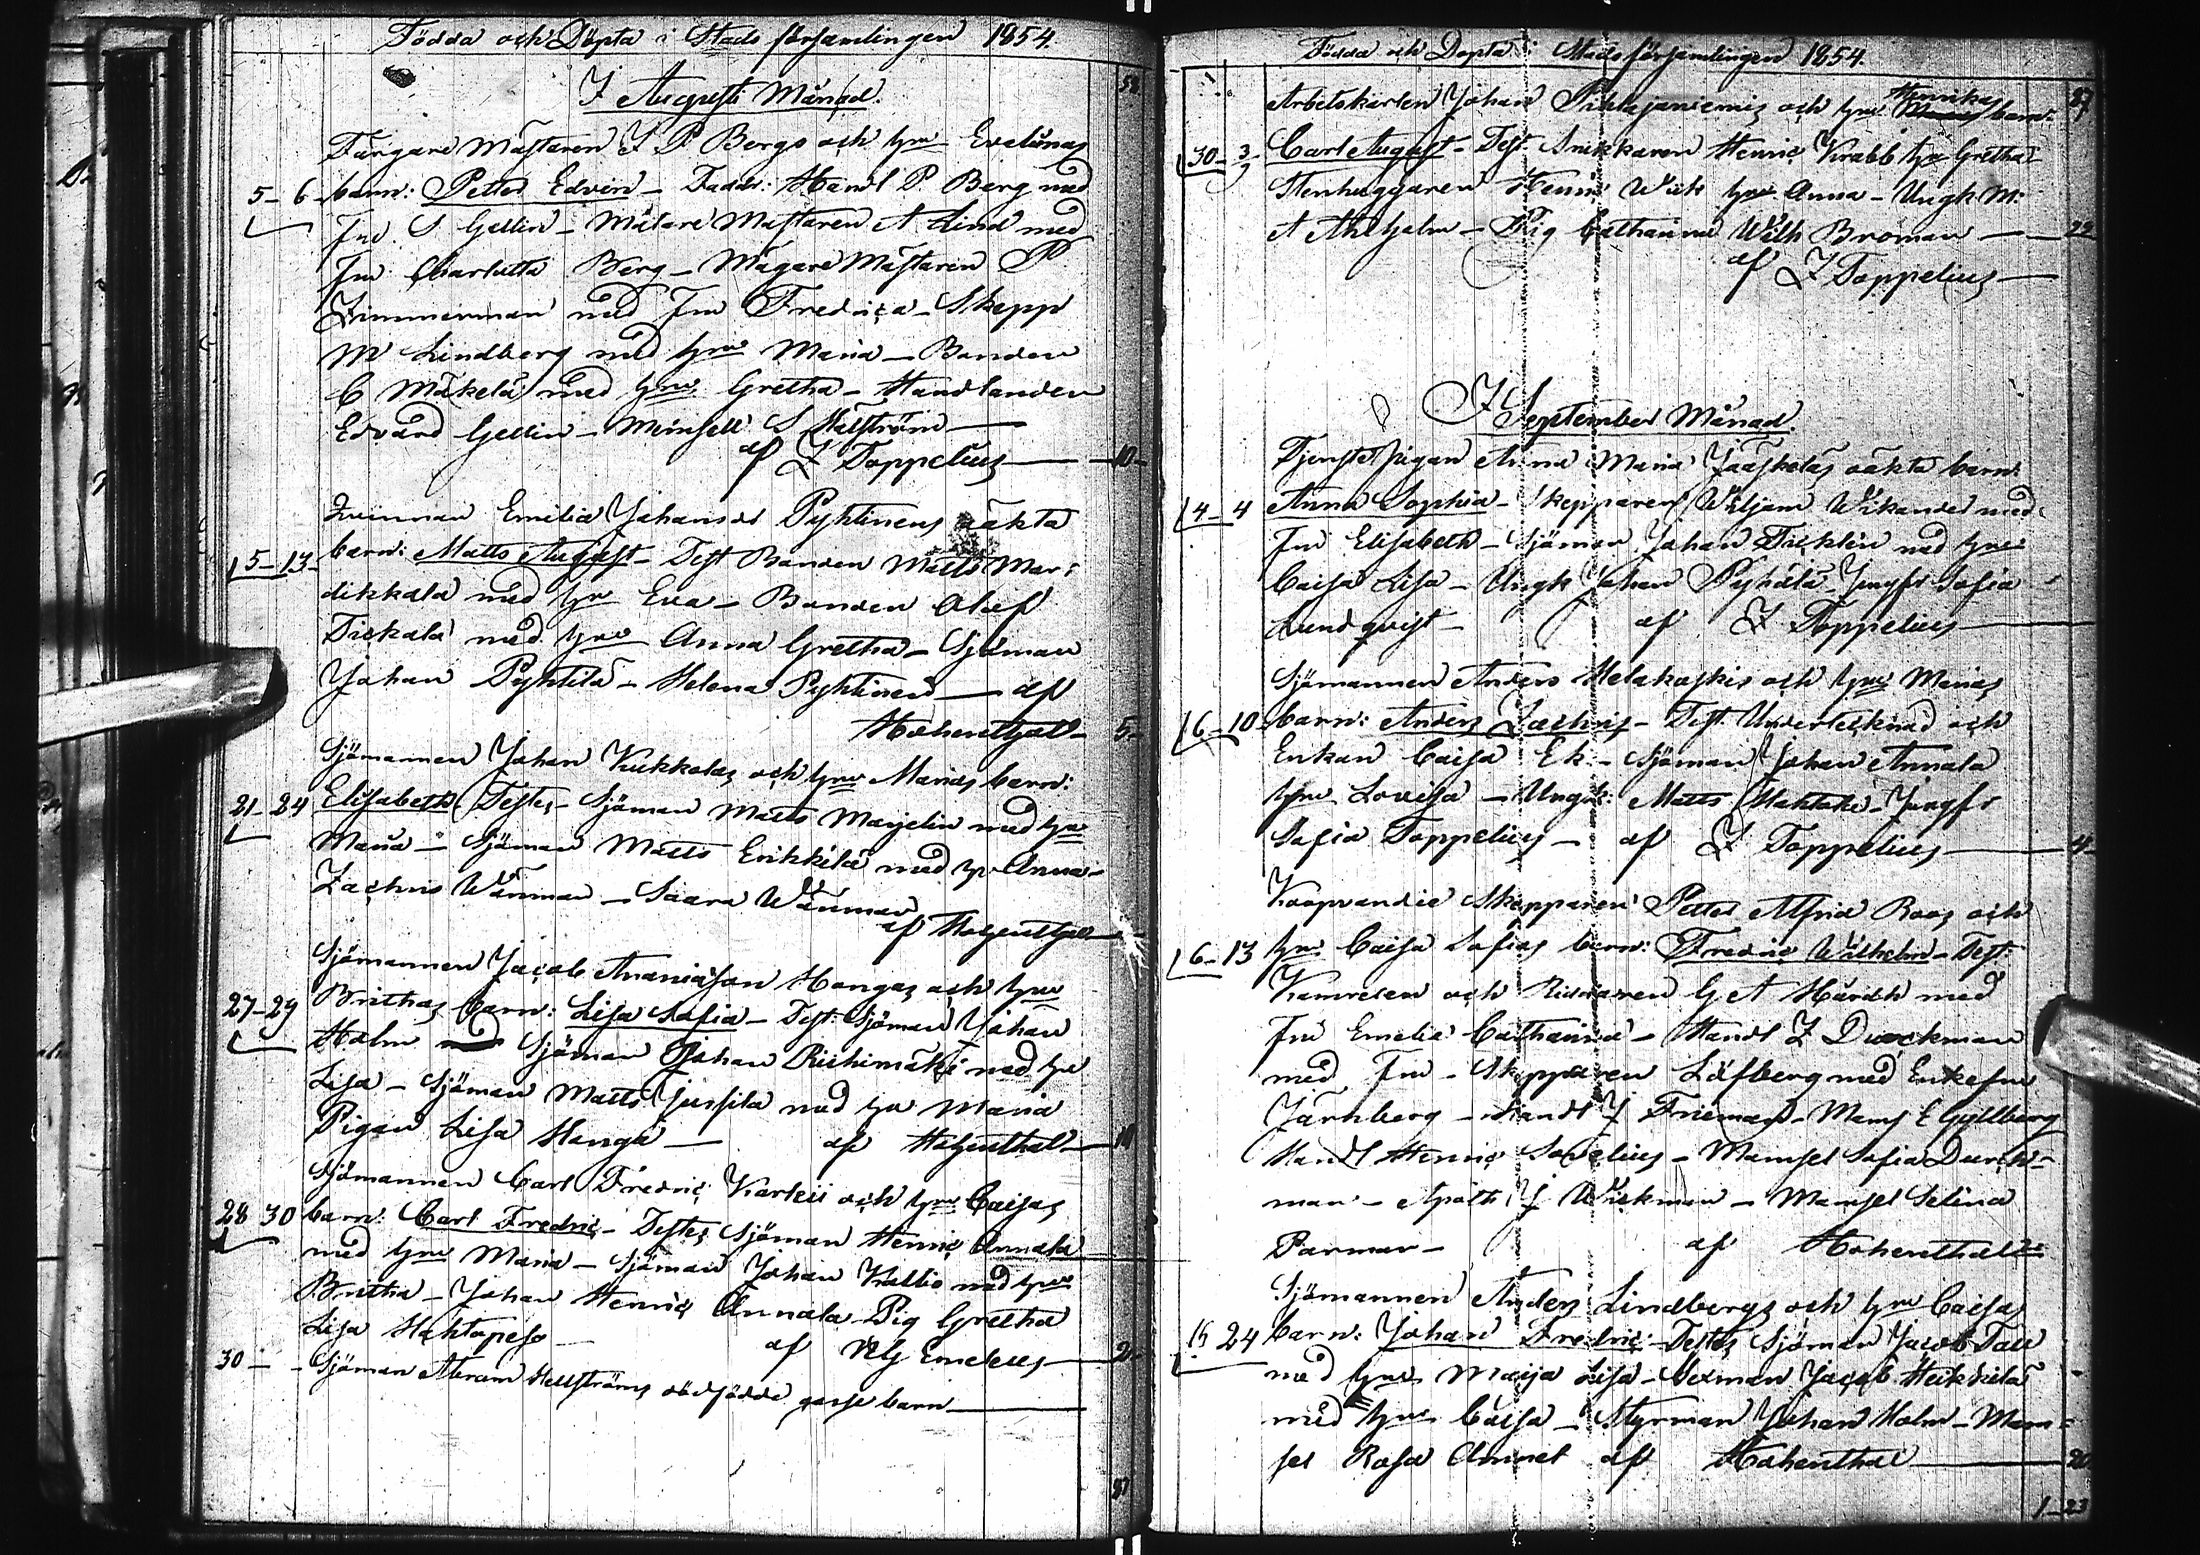 Födda och Döpta i Stads församlingen 1854.
I Augusti Månad.
58
Färgare Mästaren J P Bergs och hru Evelinas
5 - 6 barn: Petter Edvin - Faddr: Handl P. Berg med
fru S Gellin - Målare Mästaren A Lind med
fru Charlotta Berg - Mästaren P
Zimmerman med fru Fredrica - Skepp
M Lindberg med hru Maria - Bonden
C Mäkelä med hru Gretha - Handlanden
Edvard Gellin - Mamsell S Hellström
af Z Toppelius - 10 -
Qvinnan Emilia Johansdr Pyhtinens oäkta
5 - 13 - barn: Matts August - Test Bonden Matts Mar-
dikkala med hru Eva - Bonden Olof
Tickala med hru Anna Gretha - Sjöman
Johan Pyhtilä - Helena Pyhtinen - af
Hohenthal - 5 -
Sjömannen Johan Kukkolas och hru Marias barn:
21 - 24 Elisabeth Testes - Sjöman Matts Marjelin med hru
Maria - Sjöman Matts Erikkilä med hr Anna -
Zachris Wänman - Saara Wänman
af Hohenthal
Sjömannen Jacob Ananiasson Hongas och hru
27 - 29 Brithas barn: Lisa Sofia - Test: Sjöman Johan
Holm Sjöman Johan Riihimäki med hru
Lisa - Sjöman Matts Jussila med hru Maria
Pigan Lisa Hanga - af Hohenthal - 10
Sjömannen Carl Fredric och hru Caisas
28 30 barn: Carl Fredric - Testes Sjöman Henric Annala
med hru Maria - Sjöman Johan Kallio med hru
Britha - Johan Henric Annala - Pig Gretha
Lisa af Emeleus - 2 -
30 - - Sjöman Abram Hellströms dödfödde gosse barn
87
Födda och Döpta i Stads församlingen 1854.
Arbetskarlen Johan och hru Henrikas barn: 87
30 - 3 Carl August - Test. Snikkaren Henric Krabb hru Gretha
Stenhuggaren Henric Wiik hru Anna - Ungk. M:
A Ahlholm - Pig Catharina Wilh Broman - 22
af Z Toppelius -
I September Månad.
Tjenste pigan Anna Maria Jääskeläs oäkta barn:
4 - 4 Anna Sophia - Skepparen Wiljam Wikander med
fru Elisabeth - Sjöman Johan Ficklin med hru
Caisa Lisa - Ungk Johan Pyhälä - Jungfr Sofia
Lundqvist - af Z Toppelius
Sjömannen Anders Helakoskis och hru Marias
6 - 10 barn: Anders Zachris - Test. Undertecknad och
Enkan Caisa Ek - Sjöman Johan Annala
hru Lovisa - Ungk: Matts - Jungfr
Sofia Toppelius - af Z Toppelius - 4 -
Koopvandie Skepparen Petter Alfrid Roos och
6 - 13 hru Caisa Sofias barn: Fredric Wilhelm - Test:
Kamreren och Riddaren G A Hårdh med
fru Emelia Catharina - Handl Z Durckman
med fru - Skepparen Löfberg med Enkefru
Järnberg - Handl J Frieman - Mams E Gyllberg
Handl Henric Sovelius - Mamsel Sofia Durck-
man - Apoth J Wickman - Mamsel Selina
Parmar - af Hohenthal
Sjömannen Anders Lindbergs och hru Caisas
15 24 barn: Johan Fredric - Testes Sjöman Jacob Tall
med hru Maija Lisa - Jacob Heikkilä
med hru Caisa - Styrman Johan Holm - Mam-
sel Rosa af Hohenthal - 20
1 - 23